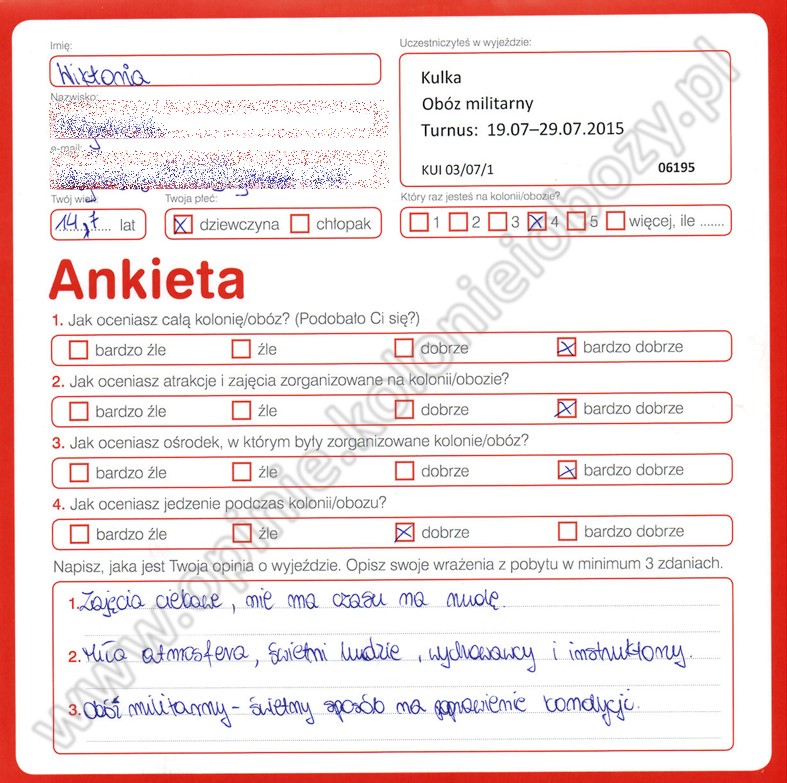 Imię:
Wiktoria
Nazwisko:
e-mail:
Twój wiek:
14,7 lat
Twoja płeć:
dziewczyna chłopak
Uczestniczyłeś w wyjeździe:
Kulka
Obóz militarny
Turnus: 19.07–29.07.2015
KUI 03/07/1 06195
Który raz jesteś na kolonii/obozie?
1 2 3 4 5 więcej, ile .......
Ankieta
1. Jak oceniasz całą kolonię/obóz? (Podobało Ci się?)
bardzo źle źle dobrze bardzo dobrze
2. Jak oceniasz atrakcje i zajęcia zorganizowane na kolonii/obozie?
bardzo źle źle dobrze bardzo dobrze
3. Jak oceniasz ośrodek, w którym były zorganizowane kolonie/obóz?
bardzo źle źle dobrze bardzo dobrze
4. Jak oceniasz jedzenie podczas kolonii/obozu?
bardzo źle źle dobrze bardzo dobrze
Napisz, jaka jest Twoja opinia o wyjeździe. Opisz swoje wrażenia z pobytu w minimum 3 zdaniach.
1. Zajęcia ciekawe, nie ma czasu na nudę.
2. Miła atmosfera, świetni ludzie, wychowawcy i instruktorzy.
3. Obóz militarny - świetny sposób na poprawienie kondycji.
www.opinie.kolonieiobozy.pl